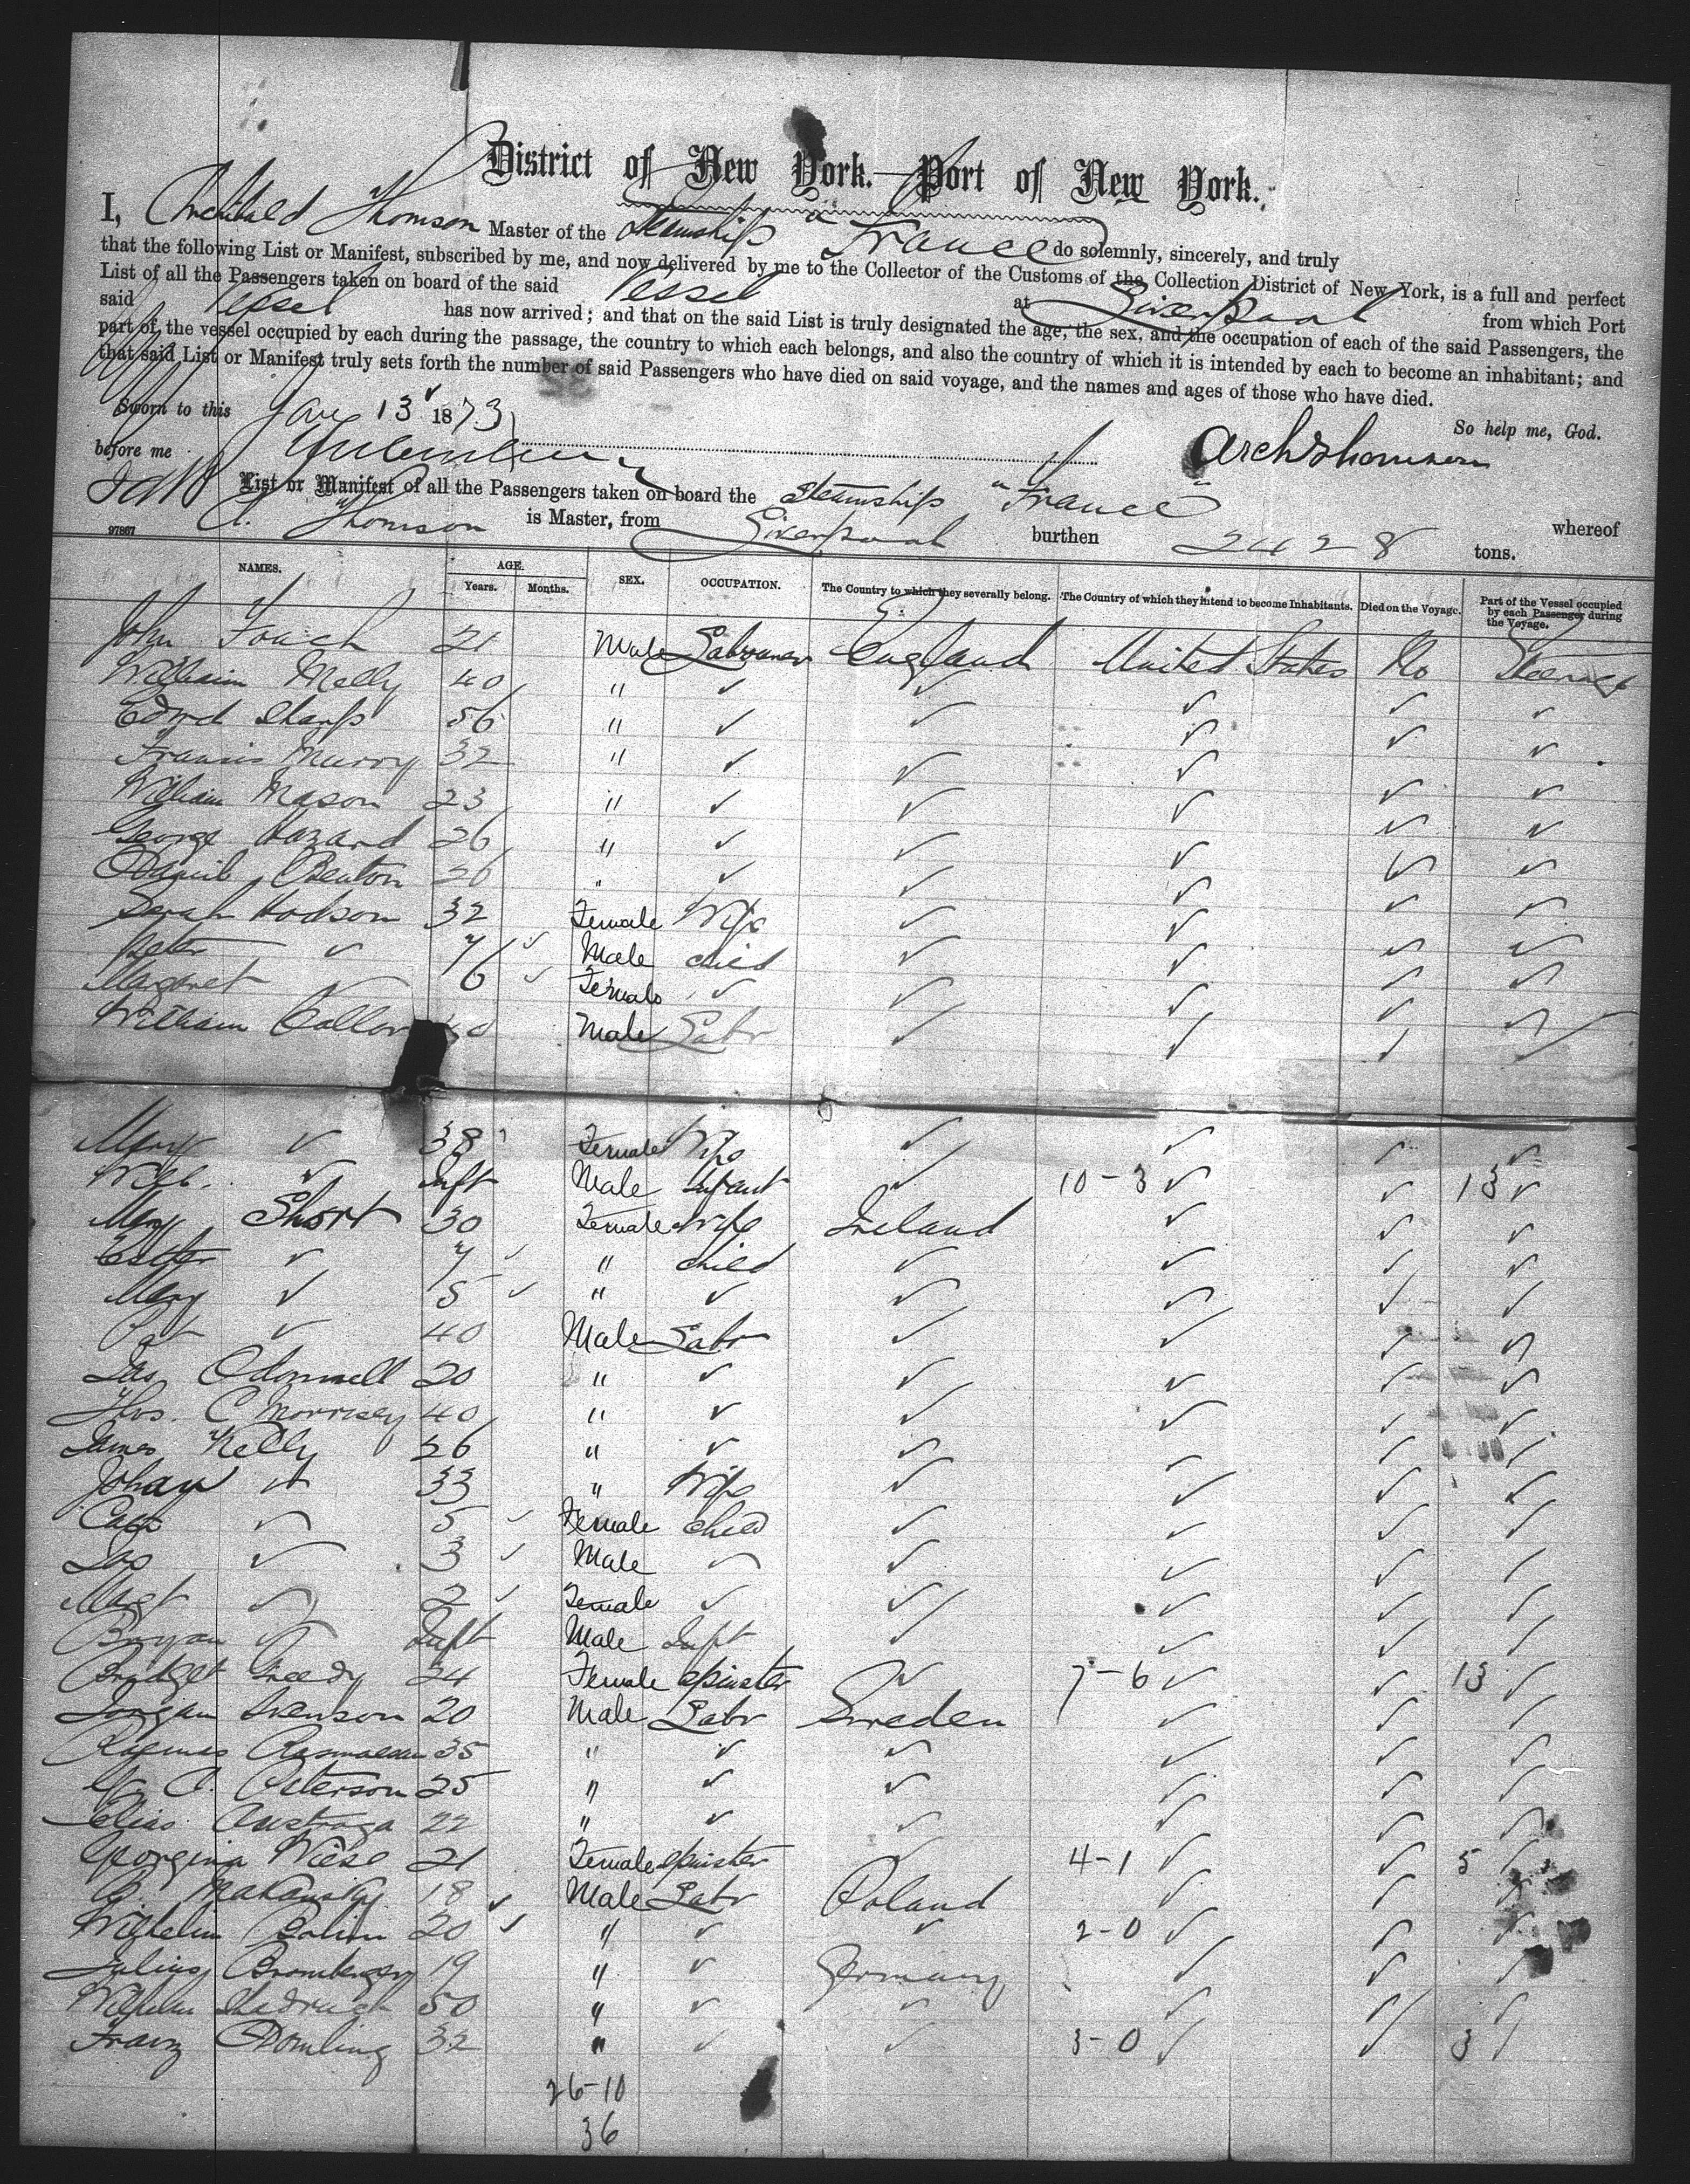 District of New York.—Port of New York.
I, Archibald Thomson Master of the Steamship "France" do solemnly, sincerely, and truly
that the following List or Manifest, subscribed by me, and now delivered by me to the Collector of the Customs of the Collection District of New York, is a full and perfect
List of all the Passengers taken on board of the said Vessel at Liverpool from which Port
said Vessel has now arrived; and that on the said List is truly designated the age, the sex, and the occupation of each of the said Passengers, the
part of the vessel occupied by each during the passage, the country to which each belongs, and also the country of which it is intended by each to become an inhabitant; and
that said List or Manifest truly sets forth the number of said Passengers who have died on said voyage, and the names and ages of those who have died.
Sworn to this Jany 13 1873 So help me, God.
before me Arch Thomson
List or Manifest of all the Passengers taken on board the Steamship "France" whereof
A. Thomson is Master, from Liverpool burthen 2428 tons.
97867
NAMES. AGE. Years. Months. SEX. OCCUPATION. The Country to which they severally belong. The Country of which they intend to become Inhabitants. Died on the Voyage. Part of the Vessel occupied by each Passenger during the Voyage.
John 21 Male Labourer England United States No Steerage
William Melly 40 " ✓ ✓ ✓ ✓ ✓
Edwd Sharp 56 " ✓ ✓ ✓ ✓ ✓
Francis Murry 32 " ✓ ✓ ✓ ✓ ✓
William Mason 23 " ✓ ✓ ✓ ✓ ✓
George Hazard 26 " ✓ ✓ ✓ ✓ ✓
Daniel Benton 26 " ✓ ✓ ✓ ✓ ✓
Sarah Hodson 32 Female Wife ✓ ✓ ✓ ✓
Peter ✓ 7 ✓ Male child ✓ ✓ ✓ ✓
Margaret ✓ 6 ✓ Female ✓ ✓ ✓ ✓ ✓
William Male Labr ✓ ✓ ✓ ✓
Mary ✓ 38 Female Wife ✓ ✓ ✓ ✓
✓ Inft Male Infant ✓ 10-3 ✓ ✓ 13 ✓
Mary Short 30 Female Wife Ireland ✓ ✓ ✓
Esther ✓ 7 ✓ " child ✓ ✓ ✓ ✓
Mary ✓ 5 ✓ " ✓ ✓ ✓ ✓ ✓
Pat ✓ 40 Male Labr ✓ ✓ ✓ ✓
Jas Odonnell 20 " ✓ ✓ ✓ ✓ ✓
Thos. C Morrisey 40 " ✓ ✓ ✓ ✓ ✓
James Kelly 26 " ✓ ✓ ✓ ✓ ✓
Johan ✓ 33 " Wife ✓ ✓ ✓ ✓
Cath ✓ 5 ✓ Female child ✓ ✓ ✓ ✓
Jas ✓ 3 ✓ Male ✓ ✓ ✓ ✓ ✓
Margt ✓ 2 ✓ Female ✓ ✓ ✓ ✓ ✓
Bryan ✓ Inft Male Inft ✓ ✓ ✓ ✓
Bridget 24 Female spinster ✓ 7-6 ✓ ✓ 13 ✓
Svenson 20 Male Labr Sweden ✓ ✓ ✓
Rasmus Rasmussen 35 " ✓ ✓ ✓ ✓ ✓
Peterson 25 " ✓ ✓ ✓ ✓ ✓
Elias 22 " ✓ ✓ ✓ ✓ ✓
Georgina Wiese 21 Female spinster ✓ 4-1 ✓ ✓ 5 ✓
Makansky 18 ✓ Male Labr Poland ✓ ✓ ✓
Wilhelm 20 ✓ " ✓ ✓ 2-0 ✓ ✓ ✓
Julius Bromberger 19 " ✓ Germany ✓ ✓ ✓
Wilhelm 50 " ✓ ✓ ✓ ✓ ✓
Franz 32 " ✓ ✓ 3-0 ✓ ✓ 3 ✓
26-10
36